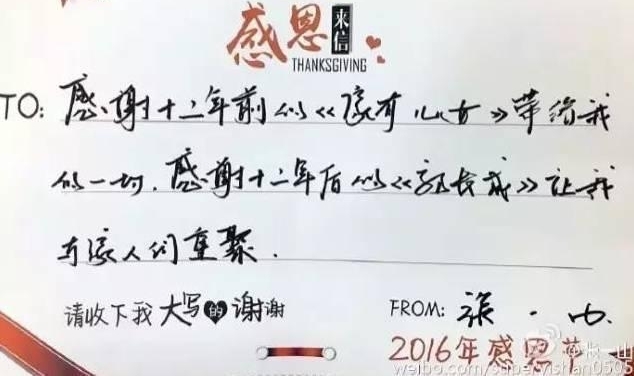 感恩 来信
THANKSGIVING
TO: 感谢十二年前的《家有儿女》带给我
的一切.感谢十二年后的《郭长成》让我
与家人们重聚.
请收下我大写的谢谢
FROM: 张一山.
2016年感恩节
@张一山
weibo.com/superyishan0505